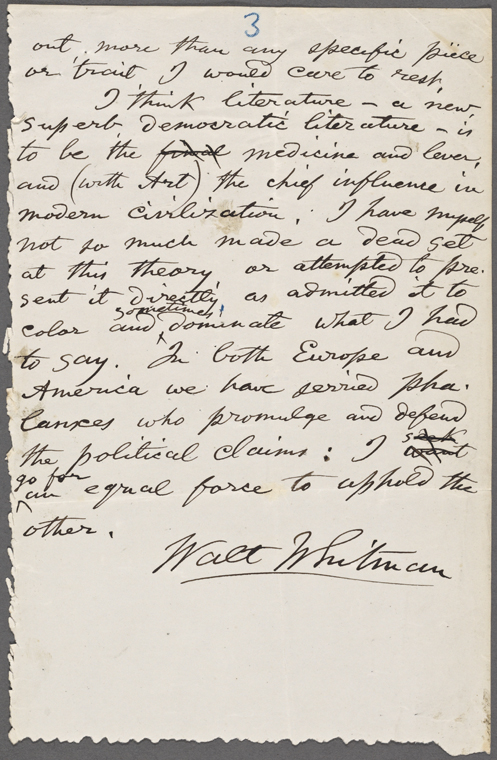 3
out, more than any specific piece
or trait I would care to rest.
I think literature – a new
superb democratic literature – is
to be the final medicine and lever,
and (with Art) the chief influence in
modern civilization. I have myself
not so much made a dead set
at this theory or attempted to pre-
sent it directly as admitted it to
sometimes
color and dominate what I had
to say. In both Europe and
America we have serried pha-
lanxes who promulge and defend
the political claims: I want
seek
go for
an equal force to uphold the
other.
Walt Whitman